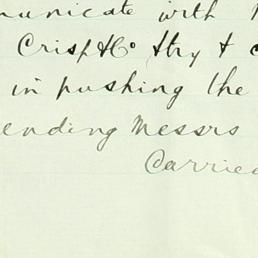 municate with
Crisp & Co try &
in pushing the
ending Messrs
Carried